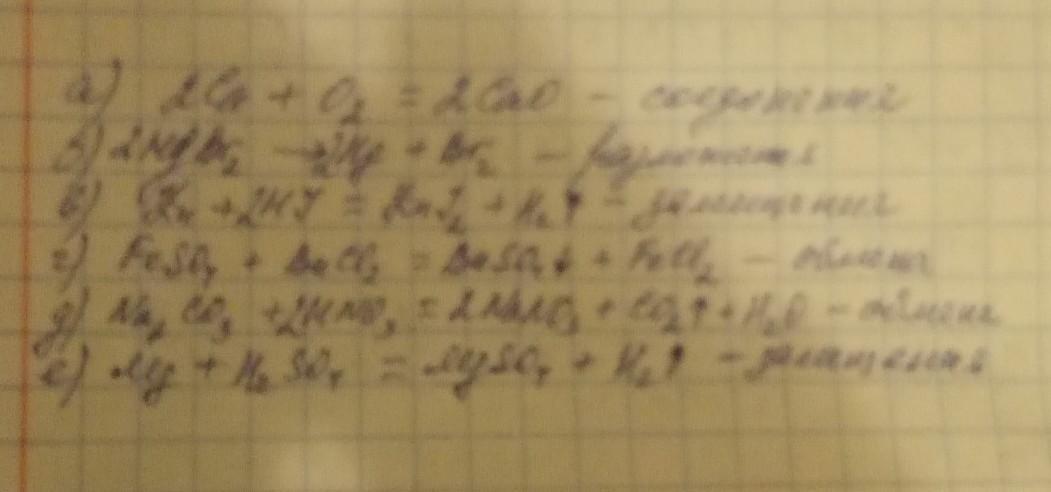 а) 2Ca + O₂ = 2CaO - соединения
б) 2HgBr₂ → 2Hg + Br₂ - разложения
в) Zn + 2HI = ZnI₂ + H₂↑ - замещения
г) FeSO₄ + BaCl₂ = BaSO₄↓ + FeCl₂ - обмена
д) Na₂CO₃ + 2HNO₃ = 2NaNO₃ + CO₂↑ + H₂O - обмена
е) Mg + H₂SO₄ = MgSO₄ + H₂↑ - замещения